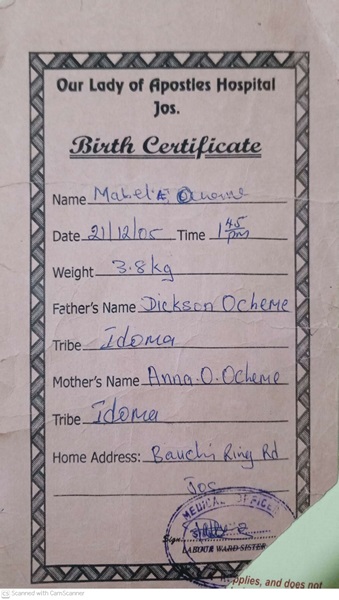 Our Lady of Apostles Hospital
Jos.
Birth Certificate
Name Mabel E Ocheme
Date 21/12/05 Time 1 45 pm
Weight 3.8kg
Father's Name Dickson Ocheme
Tribe Idoma
Mother's Name Anna.O.Ocheme
Tribe Idoma
Home Address: Bauchi Ring Rd
Jos
MEDICAL OFFICER
Sign
LABOUR WARD SISTER
applies, and does not
CS Scanned with CamScanner